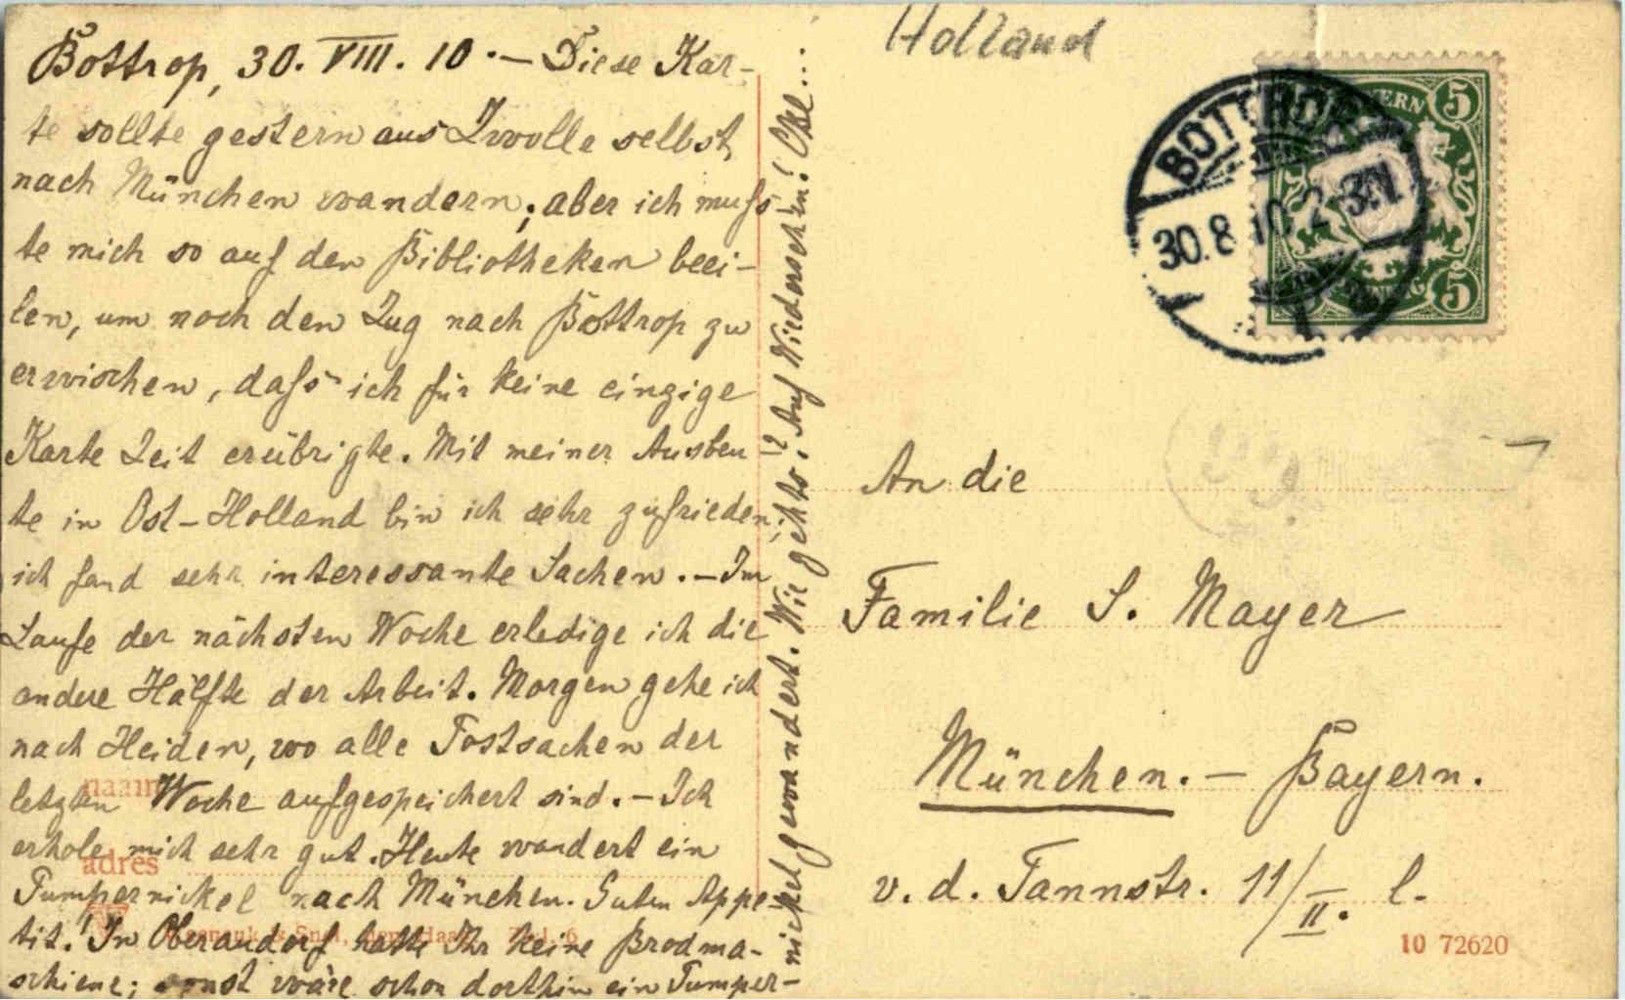 Bottrop, 30. VIII. 10. – Diese Kar-
te sollte gestern aus Zwolle selbst
nach München wandern; aber ich muss
te mich so auf den Bibliotheken beei-
len, um noch den Zug nach Bottrop zu
erwischen, dass ich für keine einzige
Karte Zeit erübrigte. Mit meiner Ausbeu
te in Ost-Holland bin ich sehr zufrieden;
ich fand sehr interessante Sachen. – Im
Laufe der nächsten Woche erledige ich die
andere Hälfte der Arbeit. Morgen gehe ich
nach Heiden, wo alle Postsachen der
letzten Woche aufgespeichert sind. – Ich
erhole mich sehr gut. Heute wandert ein
Pumpernickel nach München. Guten Appe-
tit! In Oberaudorf hattet Ihr keine Brodma-
schiene; sonst wäre schon dorthin ein Pumper-
nickel gewandert. Wie geht's? Auf Wiedersehen!
Holland
BOTTROP
30.8.10. 2-3N.
BAYERN
5
5
An die
Familie S. Mayer
München. – Bayern.
v. d. Tannstr. 11/II. l.
naam
adres
10 72620